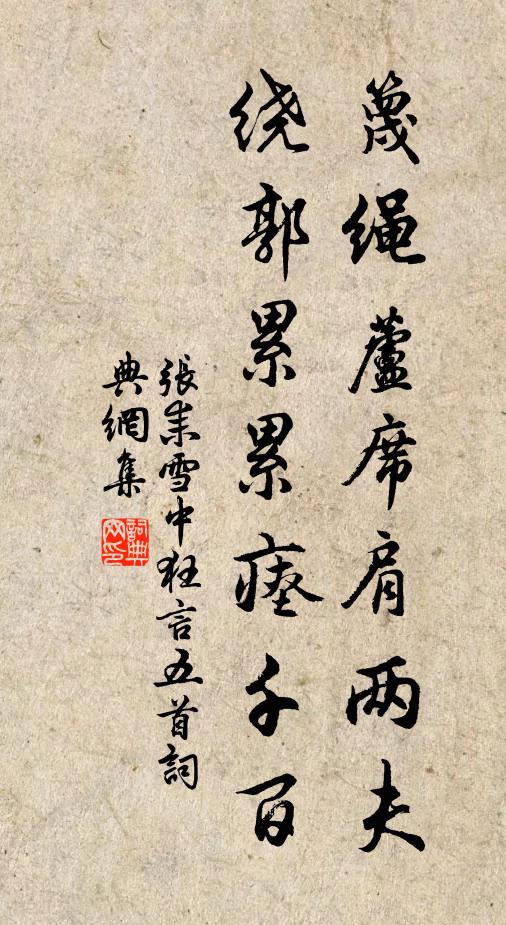 蔑繩蘆席肩两夫
绕郭累累瘗千百
張耒雪中狂言五首詞
典網集
詞典网印